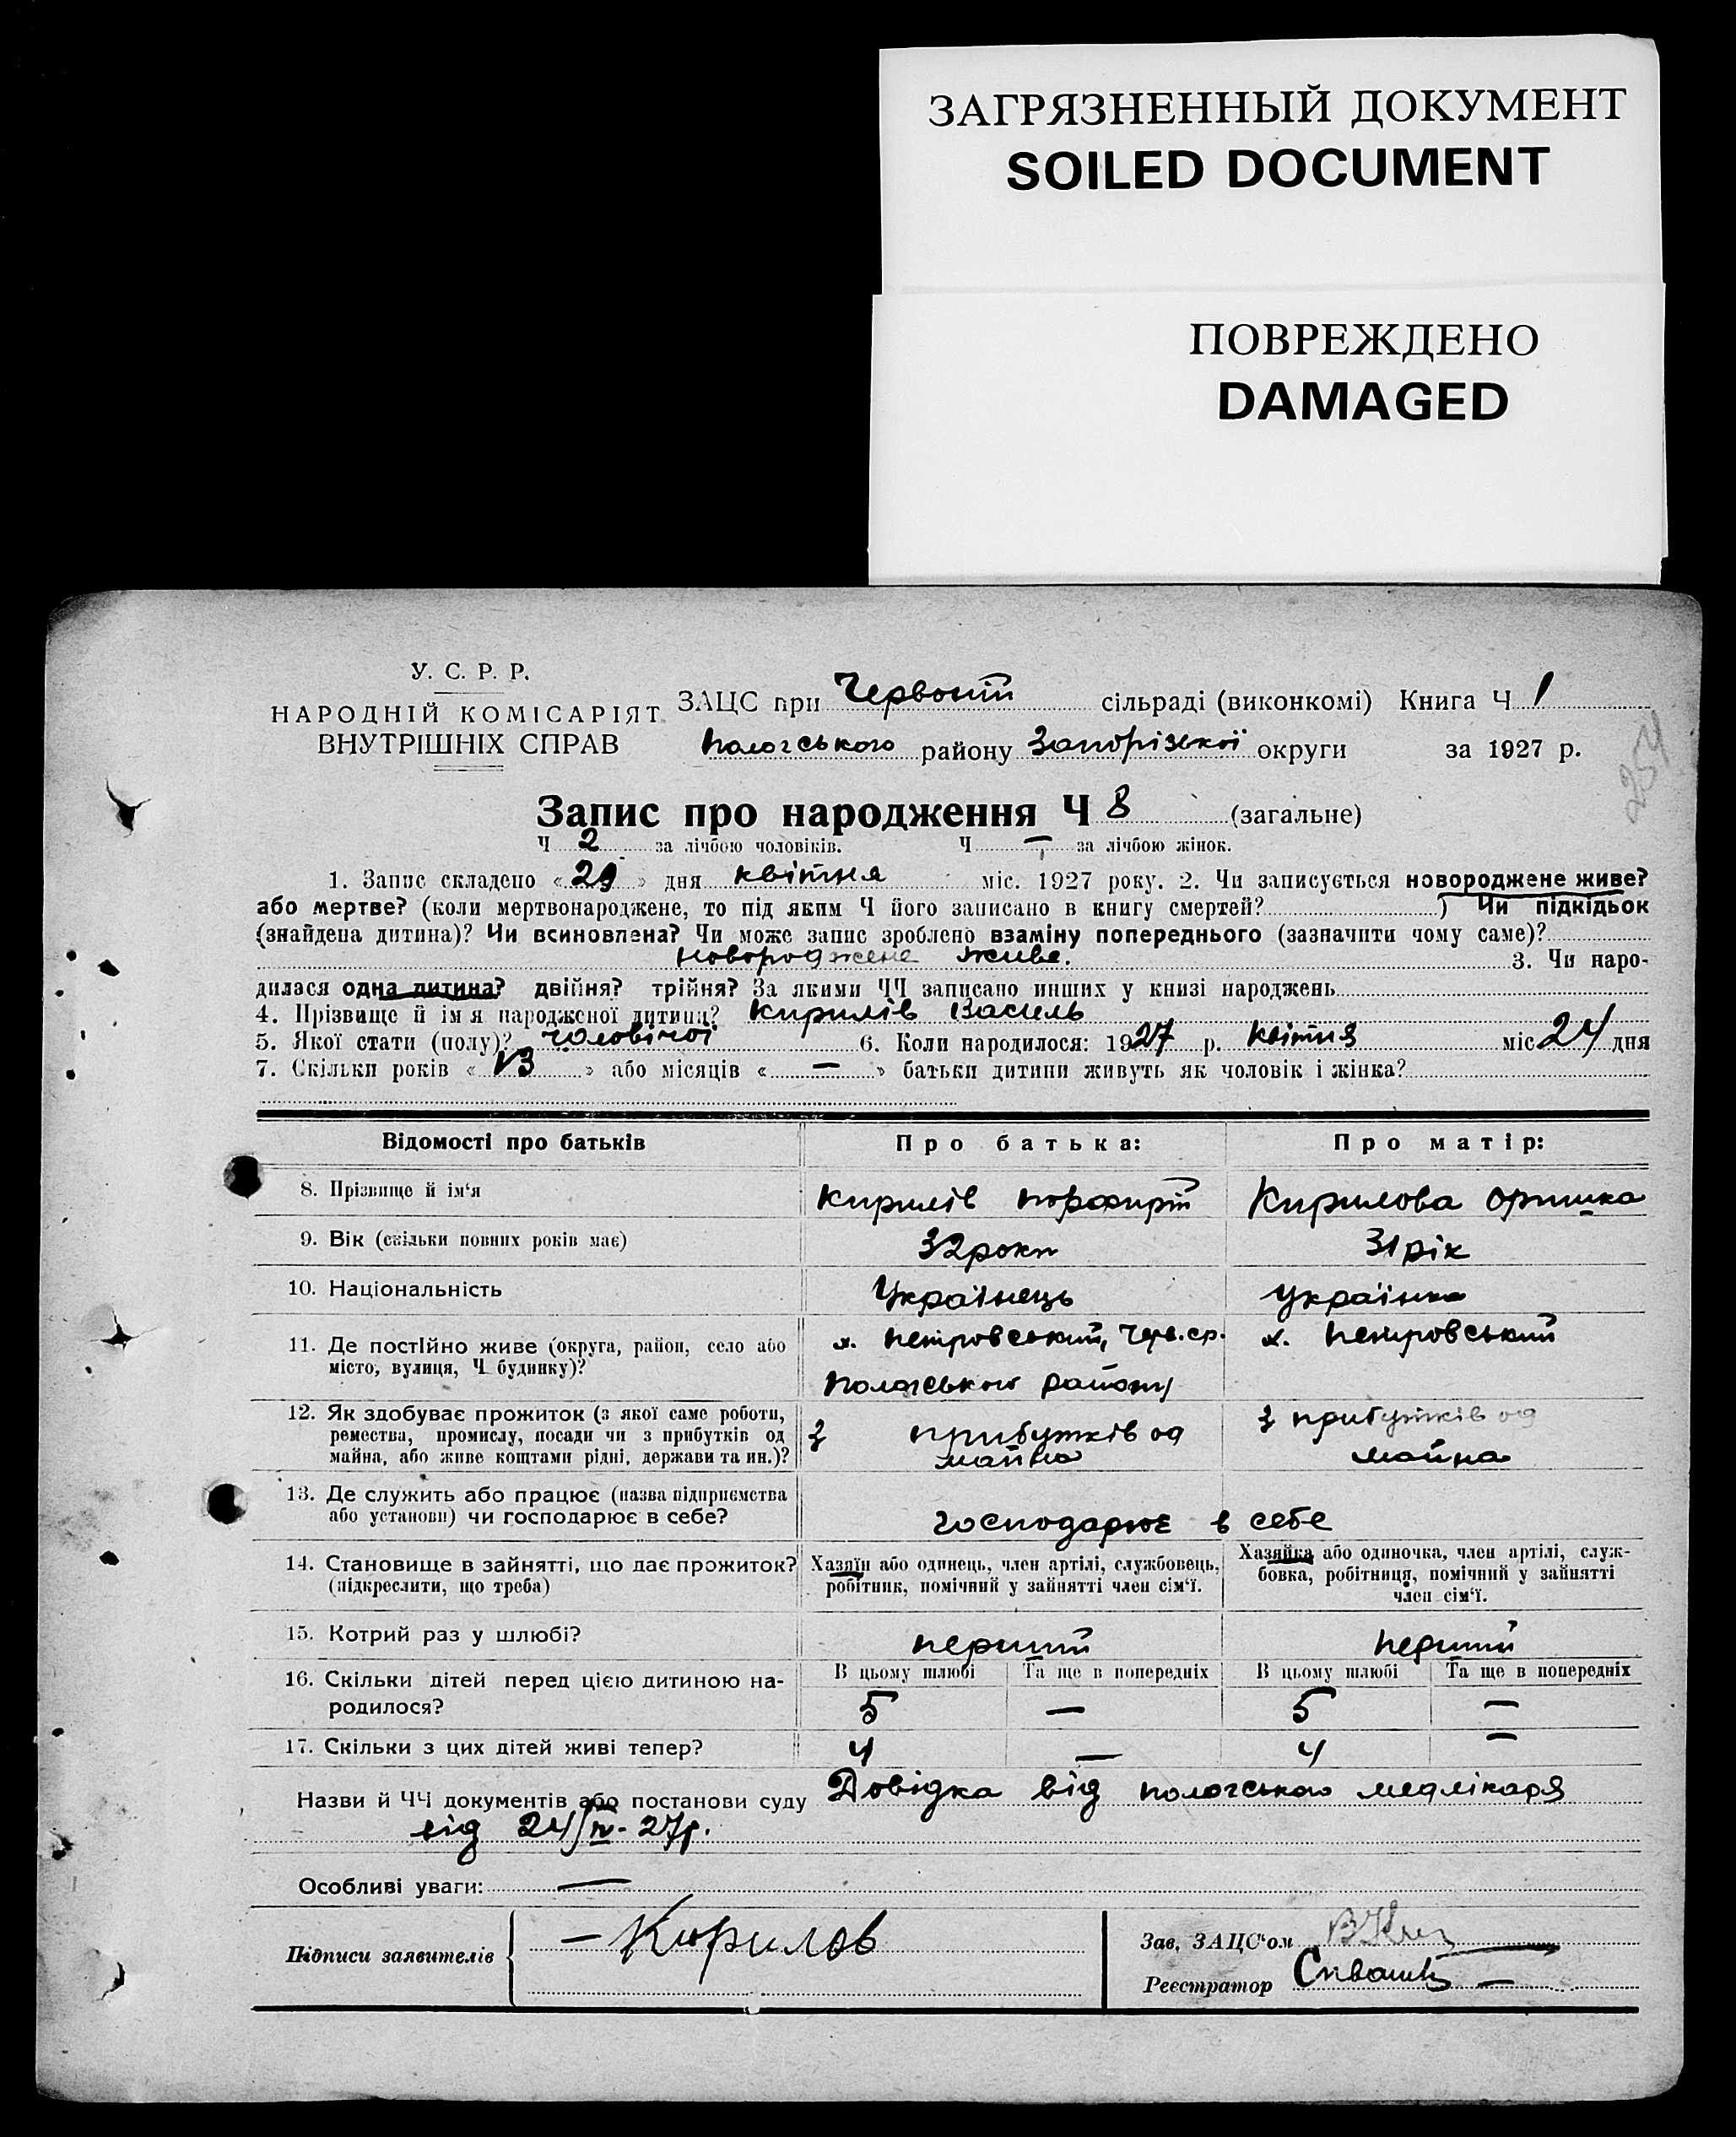 ЗАГРЯЗНЕННЫЙ ДОКУМЕНТ
SOILED DOCUMENT
ПОВРЕЖДЕНО
DAMAGED
У. С. Р. Р.
НАРОДНІЙ КОМІСАРІЯТ
ВНУТРІШНІХ СПРАВ
ЗАЦС при Червоній сільраді (виконкомі) Книга Ч 1
Пологського району Запорізької округи за 1927 р.
254
Запис про народження Ч 8 (загальне)
Ч 2 за лічбою чоловіків. Ч — за лічбою жінок.
1. Запис складено « 29 » дня квітня міс. 1927 року. 2. Чи записується новороджене живе?
або мертве? (коли мертвонароджене, то під яким Ч його записано в книгу смертей? ) Чи підкідьок
(знайдена дитина)? Чи всиновлена? Чи може запис зроблено взаміну попереднього (зазначити чому саме)?
новороджене живе. 3. Чи наро-
дилася одна дитина? двійня? трійня? За якими ЧЧ записано инших у книзі народжень
4. Прізвище й ім я народженої дитини? Кирилів Василь
5. Якої стати (полу)? чоловічої 6. Коли народилося: 1927 р. квітня міс 24 дня
7. Скільки років « 13 » або місяців « — » батьки дитини живуть як чоловік і жінка?
Відомості про батьків Про батька: Про матір:
8. Прізвище й ім'я Кирилів Порфирій Кирилова Оришка
9. Вік (скільки повних років має) 32 роки 31 рік
10. Національність Українець Українка
11. Де постійно живе (округа, район, село або місто, вулиця, Ч будинку)? х. Петровський, Черв. ср. х. Петровський
Пологського району
12. Як здобуває прожиток (з якої саме роботи,
ремества, промислу, посади чи з прибутків од
майна, або живе коштами рідні, держави та ин.)?
з прибутків од майна з прибутків од майна
13. Де служить або працює (назва підприємства
або установи) чи господарює в себе? господарює в себе
14. Становище в зайнятті, що дає прожиток?
(підкреслити, що треба)
Хазяїн або одинець, член артілі, службовець,
робітник, помічний у зайнятті член сім'ї.
Хазяйка або одиночка, член артілі, служ-
бовка, робітниця, помічний у зайнятті
член сім'ї.
15. Котрий раз у шлюбі? перший перший
В цьому шлюбі Та ще в попередніх В цьому шлюбі Та ще в попередніх
16. Скільки дітей перед цією дитиною на-
родилося? 5 — 5 —
17. Скільки з цих дітей живі тепер? 4 — 4 —
Назви й ЧЧ документів або постанови суду Довідка від пологського медлікаря
від 24/IV-27р.
Особливі уваги: —
Підписи заявителів — Кирилов
Зав. ЗАЦС'ом
Реєстратор